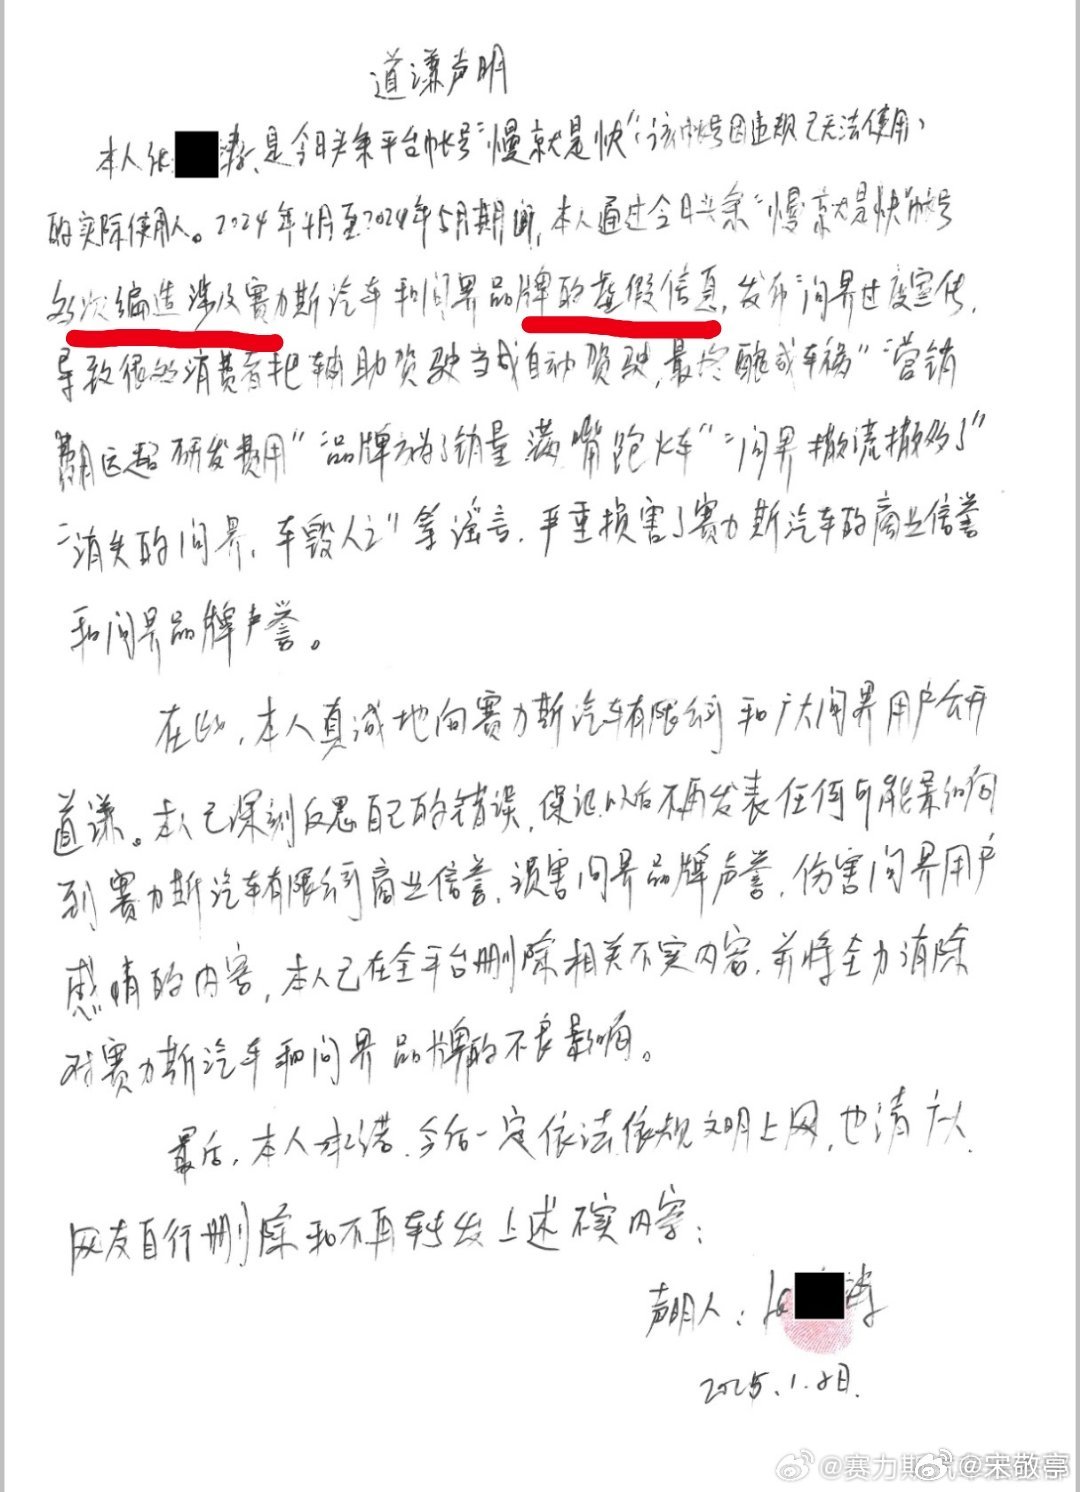 道谦声明
本人张 涛，是今日头条平台帐号“慢就是快”（该帐号因违规已无法使用）
的实际使用人。2024年4月至2024年5月期间，本人通过今日头条“慢就是快”帐号
多次编造涉及赛力斯汽车和问界品牌的虚假信息，发布“问界过度宣传，
导致很多消费者把辅助驾驶当成自动驾驶，最终酿成车祸”“营销
费用远超研发费用”“品牌方为了销量满嘴跑火车”“问界撤流撤多了”
“消失的问界，车毁人亡”等谣言，严重损害了赛力斯汽车的商业信誉
和问界品牌声誉。
在此，本人真诚地向赛力斯汽车有限公司和广大问界用户公开
道谦。本人已深刻反思自己的错误，保证以后不再发表任何可能影响
到赛力斯汽车有限公司商业信誉，损害问界品牌声誉，伤害问界用户
感情的内容，本人已在全平台删除相关不实内容，并将全力消除
对赛力斯汽车和问界品牌的不良影响。
最后，本人承诺，今后一定依法依规文明上网，也请广大
网友自行删除和不再转发上述不实内容；
声明人：张 涛
2025.1.8日.
@赛力斯
@宋敬亭